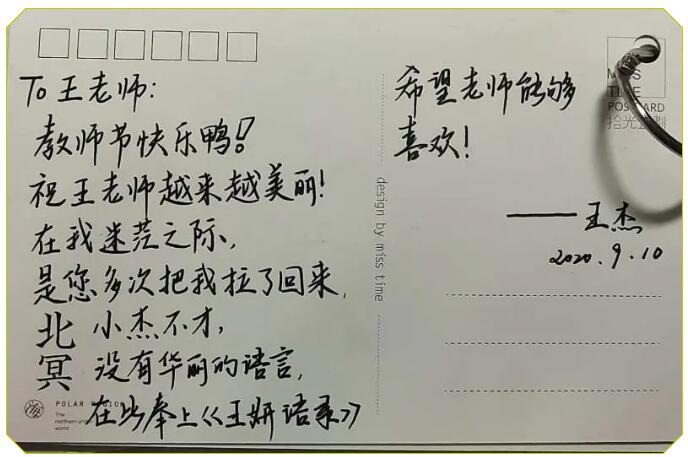 To 王老师:
教师节快乐鸭!
祝王老师越来越美丽!
在我迷茫之际,
是您多次把我拉了回来,
小杰不才,
没有华丽的语言,
在此奉上《王妍语录》
北
冥
海
POLAR
The
northern
world
design by miss time
希望老师能够
喜欢!
——王杰
2020.9.10
TIME
拾光